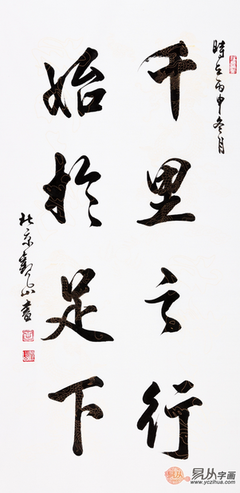 時在丙申冬月
千里之行
始於足下
易从字画
www.yczihua.com